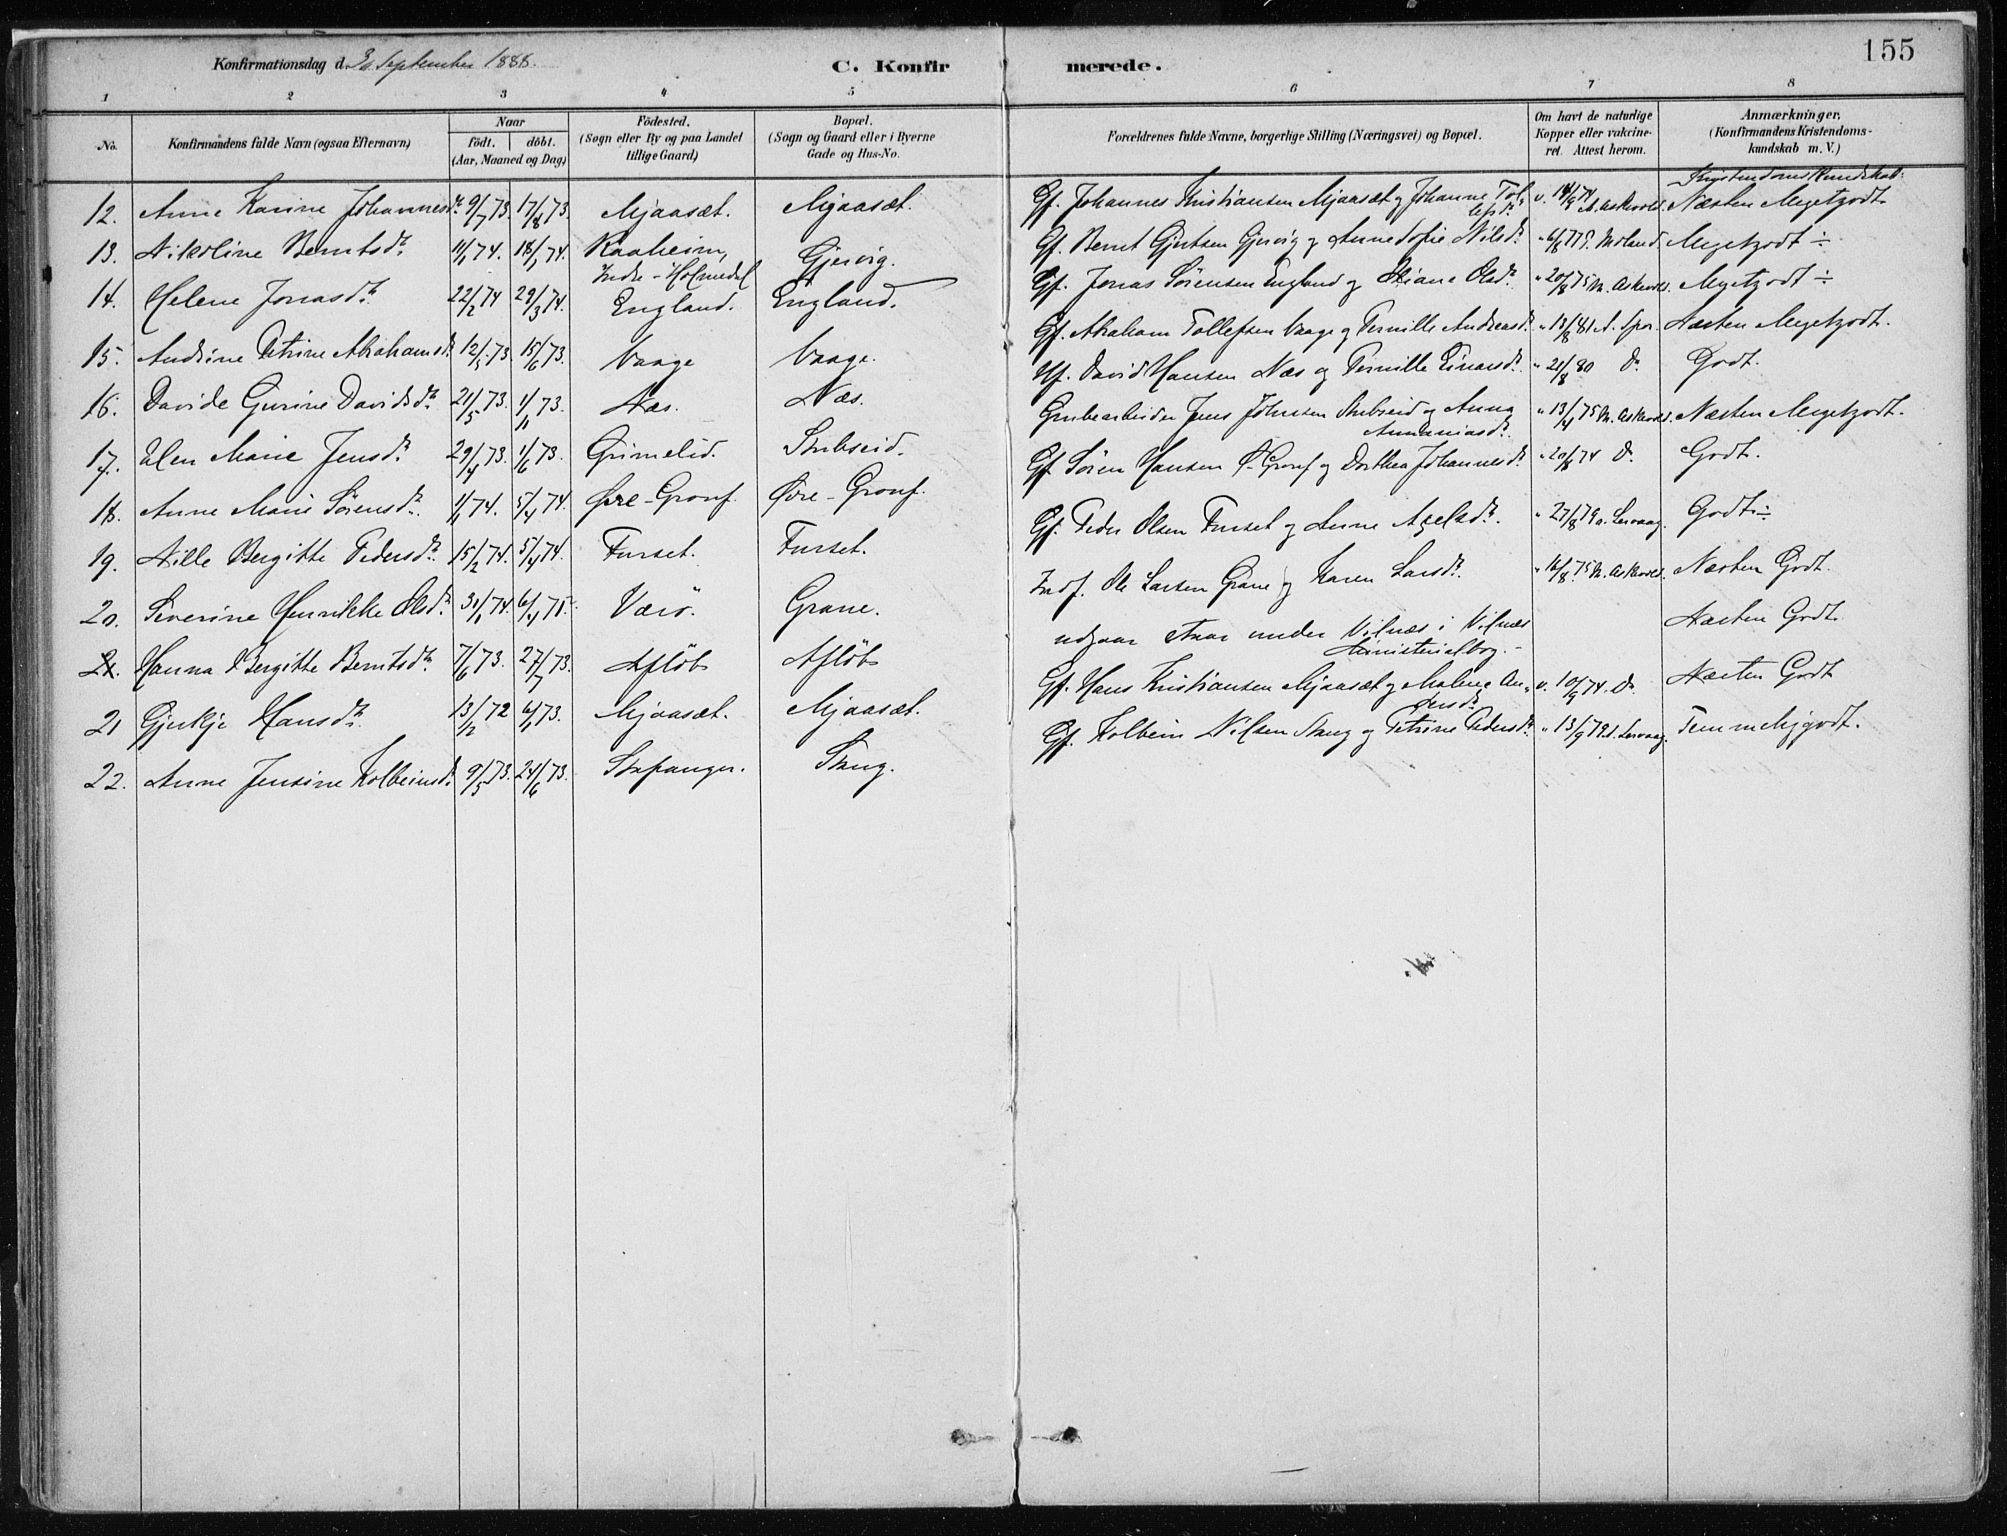 155
Konfirmationsdag d. 30 September 1888.
C. Konfirmerede.
1 2 3 4 5 6 7 8
No. Konfirmandens fulde Navn (ogsaa Efternavn) Naar födt. döbt. (Aar, Maaned og Dag) Födested. (Sogn eller By og paa Landet tillige Gaard) Bopæl. (Sogn og Gaard eller i Byerne Gade og Hus-No. Forældrenes fulde Navne, borgerlige Stilling (Næringsvei) og Bopæl. Om havt de naturlige Kopper eller vakcineret. Attest herom. Anmærkninger. (Konfirmandens Kristendomskundskab m. V.)
Kristendomskundskab:
12. Anne Karine Johannesdr. 9/7 73. 17/8 73. Mjaasæt. Mjaasæt. Gf. Johannes Kristiansen Mjaasæt og Johanne Tollefsdr. v. 14/9 74 M. Askevold. Næsten Megetgodt.
13. Nikoline Berntsdr. 11/1 74. 18/1 74. Raaheim, Indre-Holmedal Gjervig. Gf. Bernt Gjertsen Gjervig og Anne Sofie Nilsdr. " 6/8 77 Moland. Megetgodt ÷
14. Helene Jonasdr. 22/2 74 29/3 74. England. England. Gf. Jonas Sørensen England og Oliane Olsdr. " 20/8 75 M. Askevold. Megetgodt ÷
15. Andrine Petrine Abrahamsdr. 12/5 73. 15/6 73. Vaage Vaage. Gf. Abraham Tollefsen Vaage og Pernille Andreasdr. " 13/8 81 A. Spor. Næsten Megetgodt.
16. Davide Gurine Davidsdr. 21/5 73. 1/11 73. Næs. Næs. Hf. David Hansen Næs og Pernille Einarsdr. " 21/8 80 Do. Godt.
17. Elen Marie Jensdr. 29/4 73. 1/6 73. Grimelid. Stubseid. Grubearbeider Jens Johnsen Stubseid og Anna Ananiasdr. " 13/4 75 M. Askevold. Næsten Megetgodt.
18. Anne Marie Sörensdr. 1/1 74. 5/4 74. Øvre-Grouf. Øvre-Grouf. Gf. Sören Hansen Ø-Grouf og Dorthea Johannesdr. " 20/8 74 Do. Godt.
19. Nille Bergitte Pedersdr. 15/2 74. 5/4 74. Furset. Furset. Gf. Peder Olsen Furset og Anne Axelsdr. " 27/8 79 Lervaag. Godt ÷
20. Severine Henrikke Olsdr. 30/1 74. 6/4 75. Værö. Grane. Indf. Ole Larsen Grane og Karen Larsdr. " 16/8 75 M. Askevold. Næsten Godt.
21. Hanna Bergitte Berntsdr. 7/6 73. 27/7 73. Afløb Afløb udgaar staar under Vilnæs i Vilnæs Ministerialbog. Næsten Godt
21 Gjertje Hansdr. 13/12 72 6/1 73. Mjaasæt. Mjaasæt. Gf. Hans Kristiansen Mjaasæt og Malene Andersdr. v. 10/9 74. Do. Næsten Godt
22. Anne Jensine Kolbeinsdr. 9/5 73. 24/6 73. Stavanger. Stang. Gf. Kolbein Nilsen Stang og Petrine Pedersdr. " 13/9 79 Lervaag. Temmeliggodt.